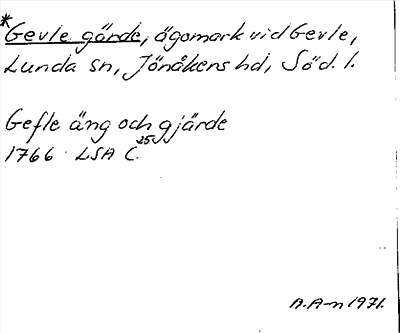 *Gevle gärde, ägomark vid Gevle,
Lunda sn, Jönåkers hd, Söd. l.
Gefle äng och gjärde
1766 LSA C 25
A.A-n 1971.